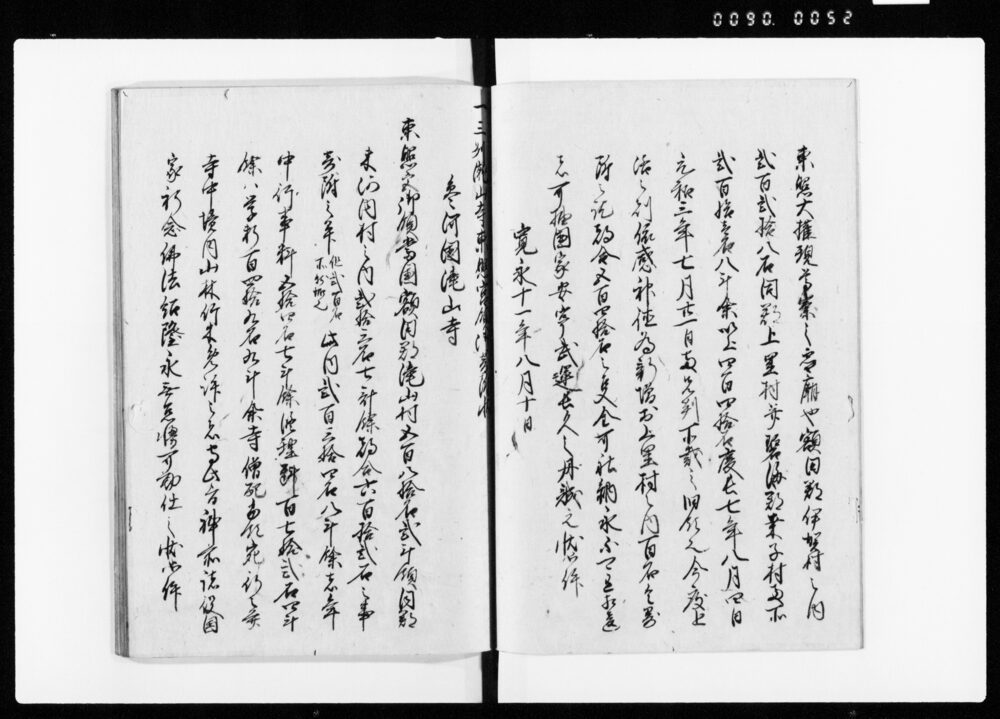 0090. 0052
東照大権現者累之霊廟也額田郡伊賀村之内
弐百弐拾八石同郡上里村并碧海郡桑子村両所
弐百拾壱石八斗余以上四百四拾石慶長七年八月四日
元和三年七月廿一日両先判所載之旧領也今度上
洛之刻依感神徳為新増於上里村之内百石令寄
附之訖都合五百四拾石之処全可社納永不可有相違
者可抽国家安寧武運長久之丹誠之状如件
寛永十一年八月十日
一三州滝山寺東照宮領
参河国滝山寺
東照宮御領当国額田郡滝山村五百八拾石弐斗額田郡
米河内村之内弐拾三石七斗余都合六百拾弐石之事
寄附之年 此内弐百三拾四石八斗余者年
中行事料五拾四石七斗余 料百七拾弐石四斗
余八 百四拾九石九斗余寺僧配当
寺中境内山林竹木免許之者守此旨神前諸役国
家祈念仏法紹隆永無怠慢可勤仕之状如件